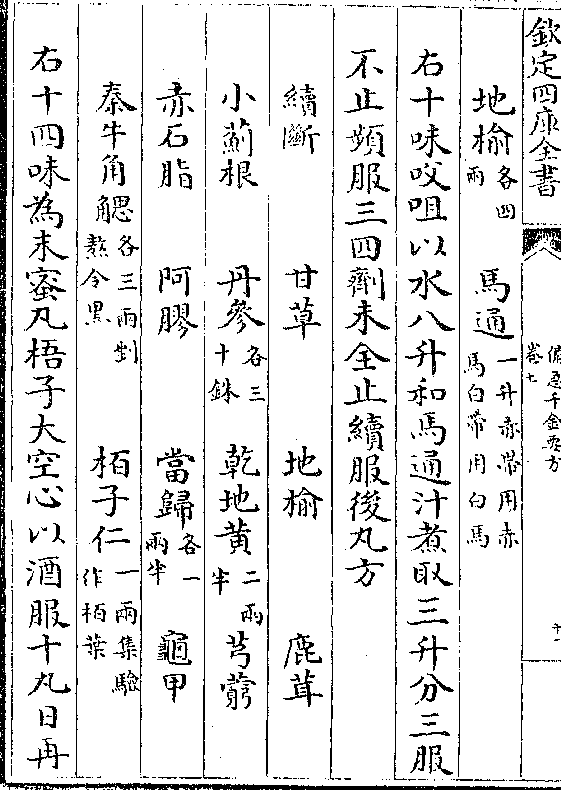 欽定四庫全書
備急千金要方
卷七
十一
地榆各四兩 馬通一升赤帶用赤馬白帶用白馬
右十味㕮咀以水八升和馬通汁煮取三升分三服
不止頻服三四劑未全止續服後丸方
續斷 甘草 地榆 鹿茸
小薊根 丹參各三十銖 乾地黃二兩半 芎藭
赤石脂 阿膠 當歸各一兩半 龜甲
秦牛角䚡各三兩剉熬令黑 栢子仁一兩集驗作栢葉
右十四味為末蜜丸梧子大空心以酒服十丸日再